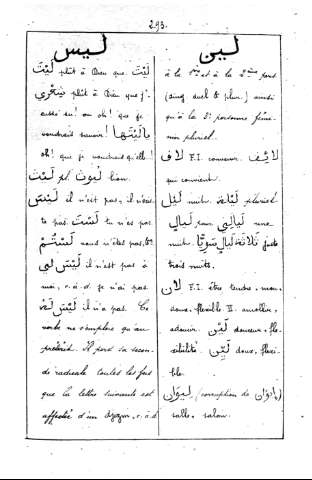 293.
ليس
لَيْتَ plût à Dieu que. لَيْتَ
شِعْرِي plût à Dieu que j'
eusse su! ou oh! que je
voudrais savoir! يَالَيْتَهَا
oh! que je voudrais qu'elle!
لَيْث pl. لُيُوث lion.
لَيْسَ il n'est pas, il n'ex
te pas. لَسْتَ tu n'es pas
لَسْتُمْ vous n'êtes pas, &
لَيْسَ لِي il n'est pas à
moi, c. à. d. je n'ai pas
لَيْسَ لَهُ il n'a pas. Ce
verbe ne s'emploie qu'au
prétérit. Il perd sa secon
de radicale toutes les fois
que la lettre suivante est
affectée d'un c. à. d
لين
à la 1ère et à la 2ème pers
(sing. duel & plur.) ainsi
qu'à la 3e personne fémi-
nin pluriel.
لاق F.I. convenir. لَائِق
qui convient.
لَيْل nuit. لَيْلَة pluriel
لَيَالٍ une
nuit. ثَلَاثَة لَيَالٍ سَوِيًّا juste
trois nuits.
لَان F.I. être tendre, mou
doux, flexible II. amollir,
adoucir. لِين douceur, fle
xibilité. لَيِّن doux, flexi
ble.
لِيوَان (corruption de إِيوَان)
salle, salon.